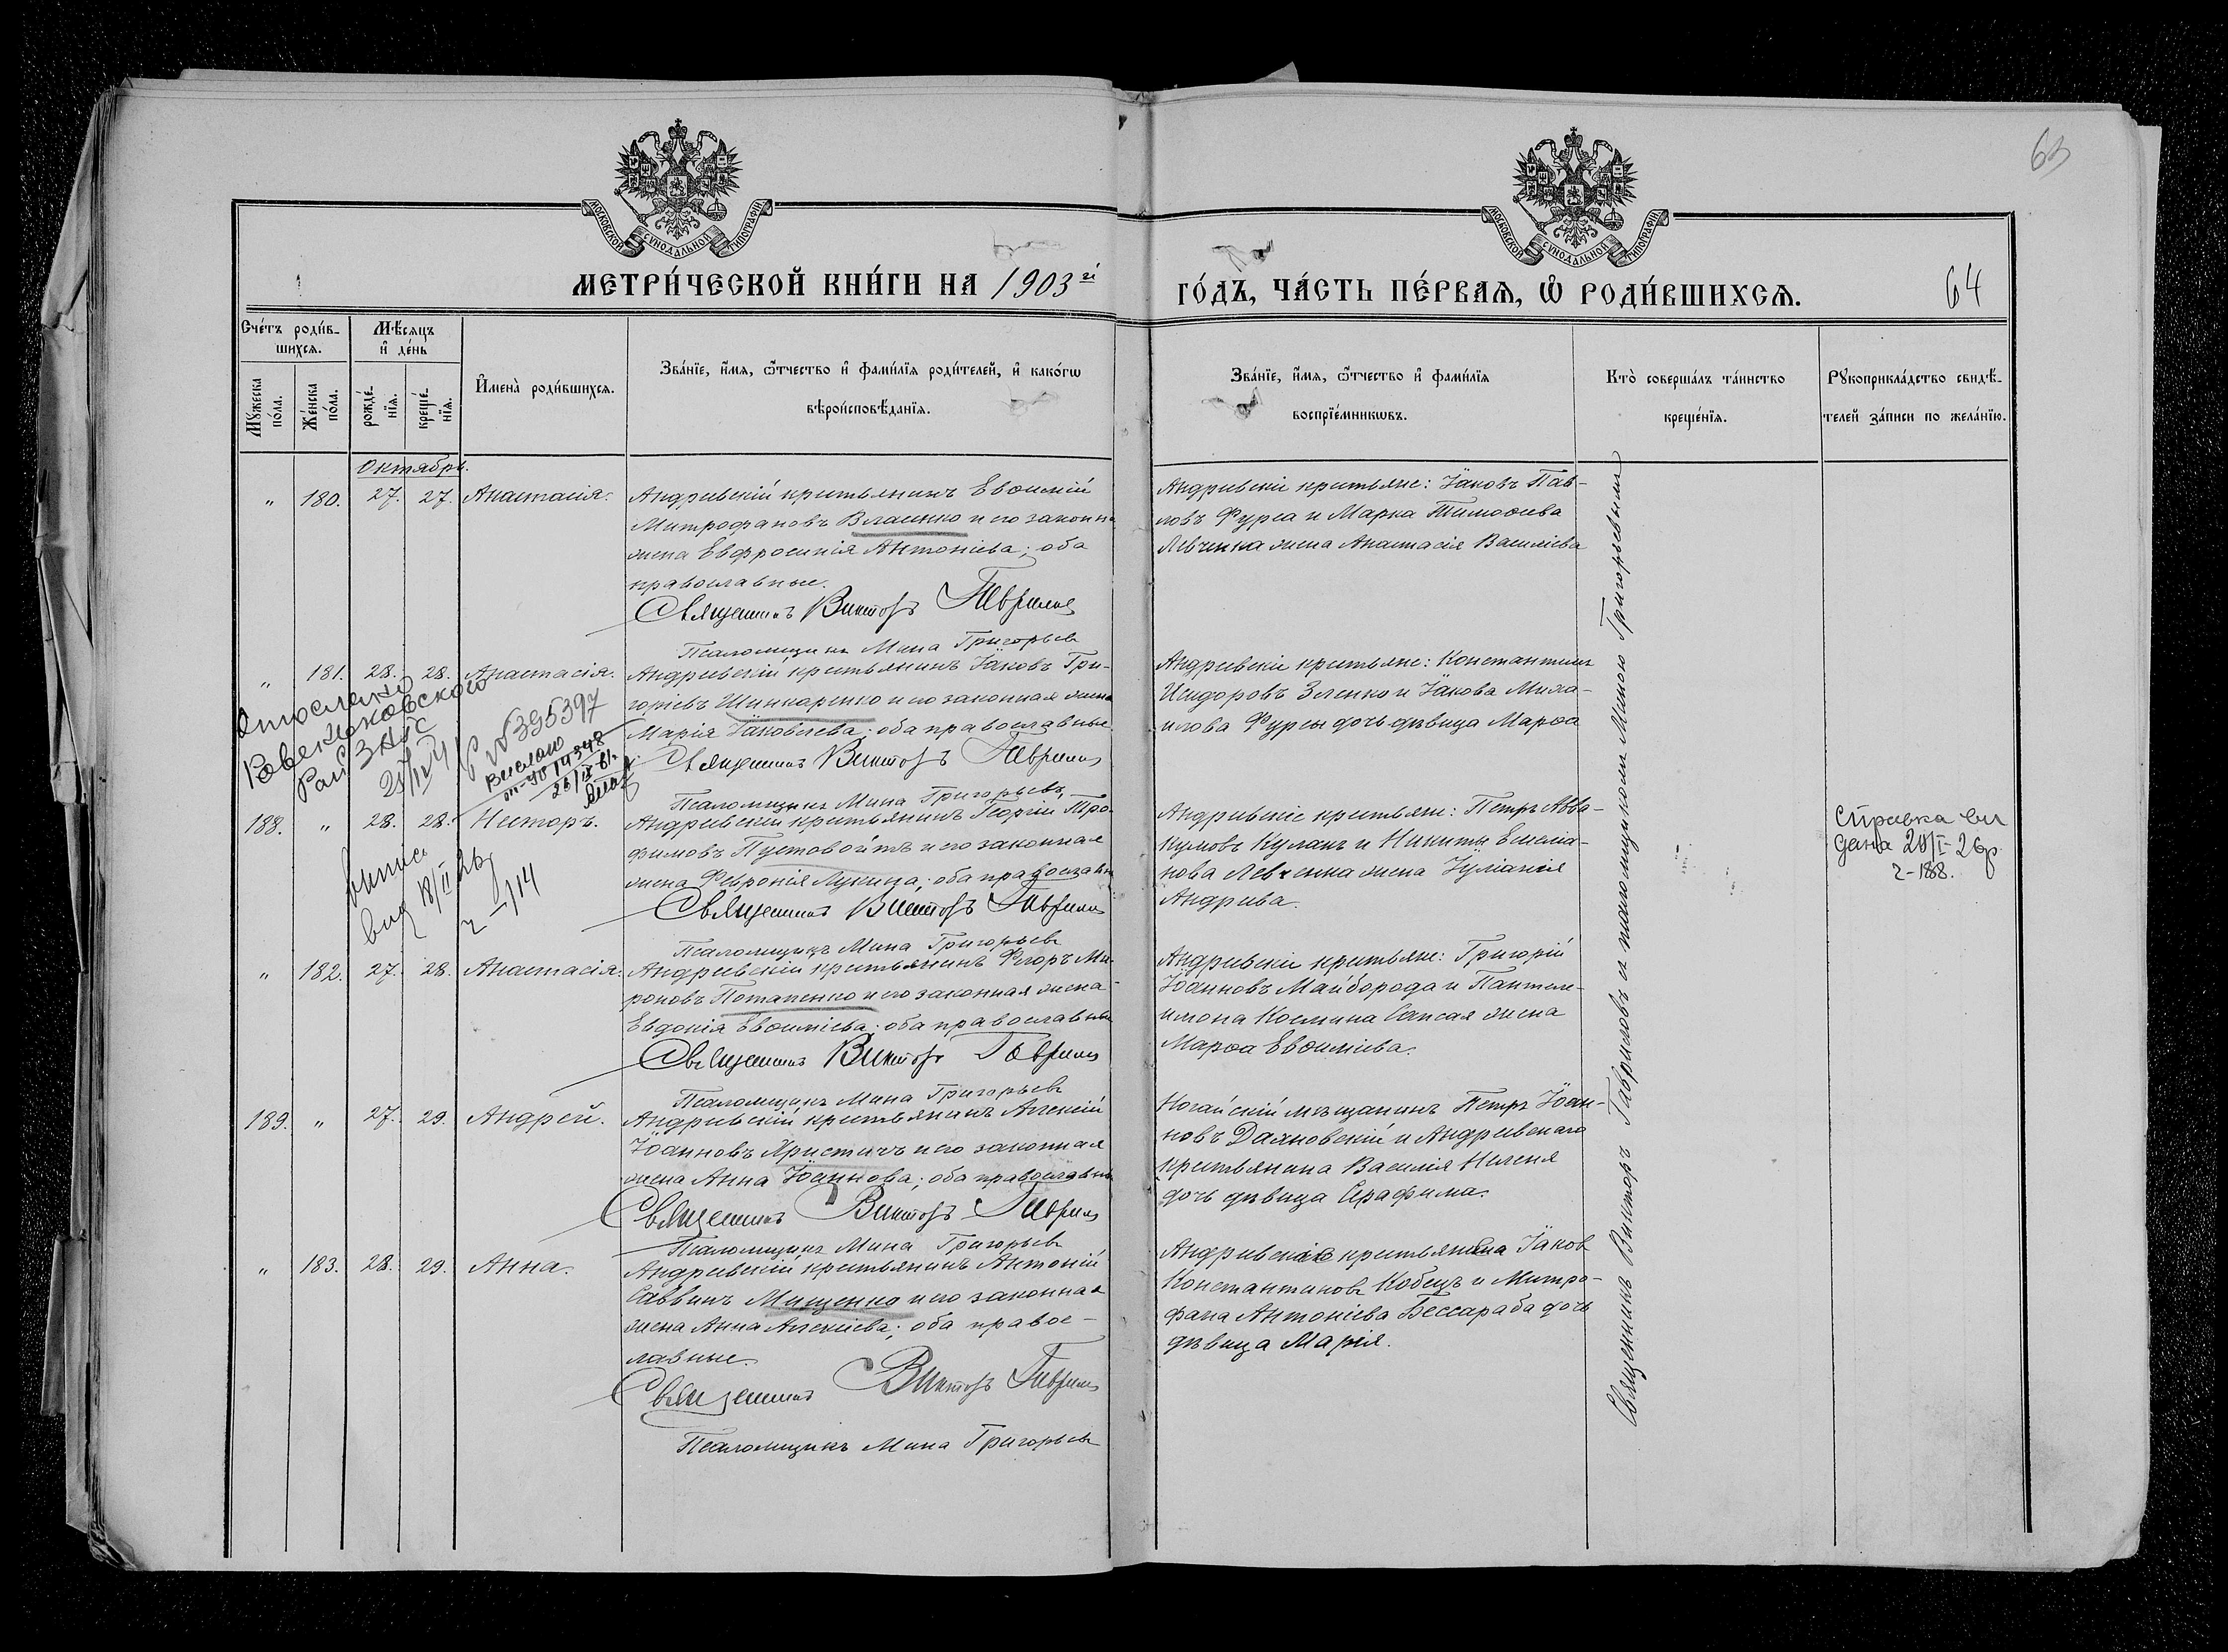 63
МОСКОВСКОЙ СѴНОДАЛЬНОЙ ТИПОГРАФІИ
МОСКОВСКОЙ СѴНОДАЛЬНОЙ ТИПОГРАФІИ
МЕТРИ́ЧЕСКОЙ КНИ́ГИ НА 1903й ГО́ДЪ, ЧА́СТЬ ПЕ́РВАѦ, Ѽ РОДИ́ВШИХСѦ.
64
Сче́тъ роди́в-
шихсѧ.
Мѣ́сѧцъ
и҆ де́нь
Мꙋ́жеска по́ла.
Же́нска по́ла.
рожде́-
нїѧ.
креще́-
нїѧ.
И҆мена̀ роди́вшихсѧ.
Зва́нїе, и҆́мѧ, ѻ҆́тчество и҆ фами́лїѧ роди́телей, и҆ како́гѡ
вѣроисповѣ́данїѧ.
Зва́нїе, и҆́мѧ, ѻ҆́тчество и҆ фами́лїѧ
воспрїе́мникѡвъ.
Кто̀ соверша́лъ та́инство
креще́нїѧ.
Рꙋкоприкла́дство свидѣ́-
телей за́писи по жела́нїю.
Октябрь.
" 180. 27. 27. Анастасія.
Андреевскій крестьянинъ Евѳимій
Митрофановъ Власенко и его законна
жена Евфросинія Антоніева; оба
православные.
Священникъ Викторъ Гаврилов
Псаломщикъ Мина Григорьев
Андреевскіе крестьяне: Іаковъ Пав-
ловъ Фурса и Марка Тимоѳеева
Левченка жена Анастасія Василіева
" 181. 28. 28. Анастасія.
Андреевскій крестьянинъ Іаковъ Гри-
горіевъ Шинкаренко и его законная жена
Марія Іаковлева; оба православные.
Священникъ Викторъ Гаврилов
Псаломщикъ Мина Григорьевъ
Андреевскіе крестьяне: Константинъ
Исидоровъ Зленко и Іакова Миха-
илова Фурсы дочь дѣвица Марѳа
Отослано
Рай ЗАГС
№ 395397
Выслано
188. " 28. 28. Несторъ.
Андреевскій крестьянинъ Георгій Тро-
фимовъ Пустовойтъ и его законная
жена Февронія Лукина; оба православн
Священникъ Викторъ Гаврилов
Псаломщикъ Мина Григорьев
Андреевскіе крестьяне: Петръ Авва-
кумовъ Куланъ и Никиты Емелиа-
нова Левченка жена Іуліанія
Андреева.
Справка вы
дана 20/I-26р
2-188.
выписка
18/II 26
" 182. 27. 28. Анастасія.
Андреевскій крестьянинъ Ѳеоръ Ми-
роновъ Потапенко и его законная жена
Евдокія Евѳиміева; оба православны
Священникъ Викторъ Гаврилов
Псаломщикъ Мина Григорьев
Андреевскіе крестьяне: Григорій
Іоанновъ Майборода и Пантеле-
имона Космина Сапсая жена
Марѳа Евѳиміева.
189. " 27. 29. Андрей.
Андреевскій крестьянинъ Алексій
Іоанновъ Христичъ и его законная
жена Анна Іоаннова; оба православны
Священникъ Викторъ Гаврилов
Псаломщикъ Мина Григорьев
Ногайскій мѣщанинъ Петръ Іоан-
новъ Даяновскій и Андреевскаго
крестьянина Василія Нелепя
дочь дѣвица Серафима.
" 183. 28. 29. Анна.
Андреевскій крестьянинъ Антоній
Саввинъ Мищенко и его законная
жена Анна Алексіева; оба право-
лавные.
Священникъ Викторъ Гаврилов
Псаломщикъ Мина Григорьев
Андреевскіе крестьянина Іаков
Константинов Кобецъ и Митро-
фана Антоніева Бессараба дочь
дѣвица Марія.
Священникъ Викторъ Гавриловъ съ псаломщикомъ Миною Григорьевымъ